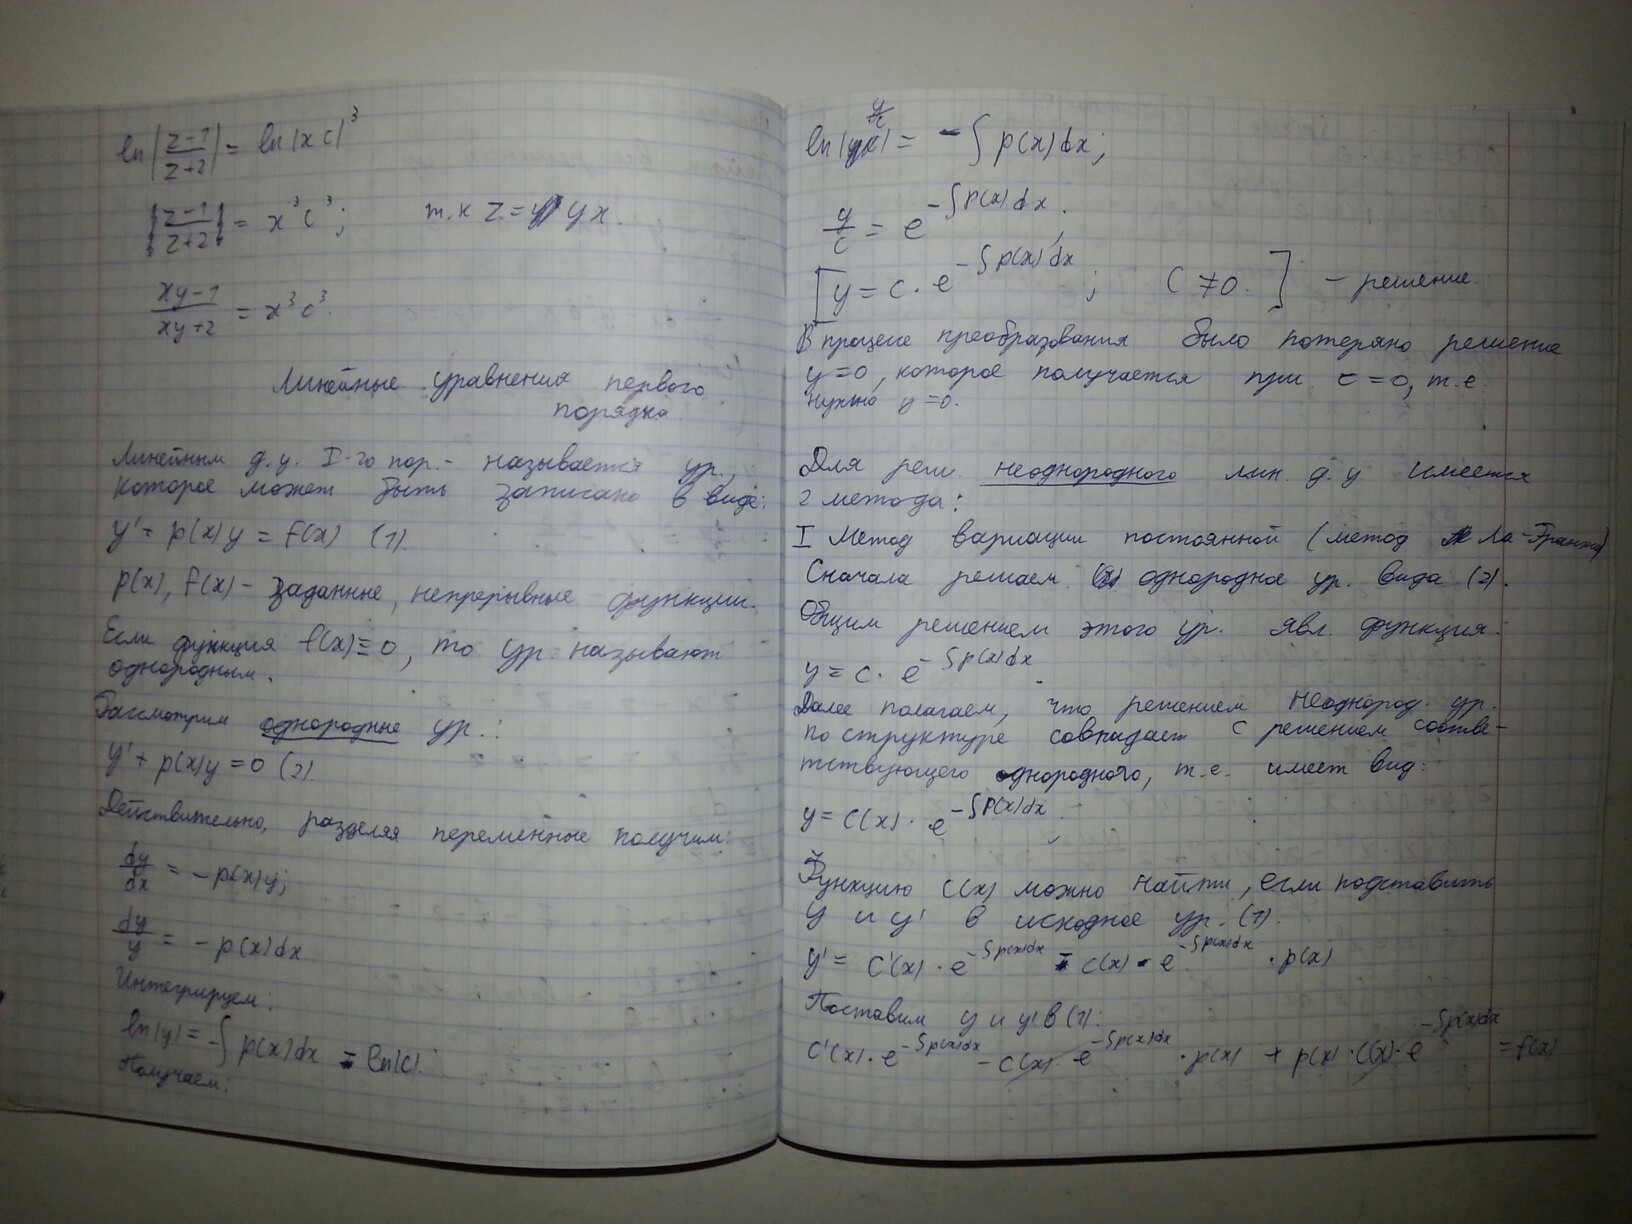 ln|z-1/z+2| = ln|xc|³
|z-1/z+2| = x³c³; т.к z = yx.
xy-1/xy+2 = x³c³.
Линейные уравнения первого
порядка.
Линейным д.у. I-го пор.- называется ур.,
которое может быть записано в виде:
y'+ p(x)y = f(x) (1).
p(x), f(x) - заданные, непрерывные функции.
Если функция f(x)≡0, то ур. называют
однородным.
Рассмотрим однородные ур.:
y'+ p(x)y = 0 (2).
Действительно, разделяя переменные получим:
dy/dx = -p(x)y;
dy/y = -p(x)dx
Интегрируем:
ln|y| = -∫p(x)dx + ln|c|.
Получаем:
ln|y/c| = -∫p(x)dx;
y/c = e^{-∫p(x)dx};
[y = c·e^{-∫p(x)dx}; C≠0.] - решение.
В процесе преобразования было потеряно решение
y=0, которое получается при c=0, т.е.
нужно y=0.
Для реш. неоднородного лин. д.у имеется
2 метода:
I Метод вариации постоянной (метод Ла-Гранжа)
Сначала решаем однородное ур. вида (2).
Общим решением этого ур. явл. функция:
y = c·e^{-∫p(x)dx}.
Далее полагаем, что решением неоднород. ур.
по структуре совпадает с решением соотве-
тствующего однородного, т.е. имеет вид:
y = C(x)·e^{-∫p(x)dx}
Функцию C(x) можно найти, если подставить
y и y' в исходное ур. (1).
y' = C'(x)·e^{-∫p(x)dx} - C(x)·e^{-∫p(x)dx}·p(x)
Поставим y и y' в (1):
C'(x)·e^{-∫p(x)dx} - C(x)·e^{-∫p(x)dx}·p(x) + p(x)·C(x)·e^{-∫p(x)dx} = f(x)